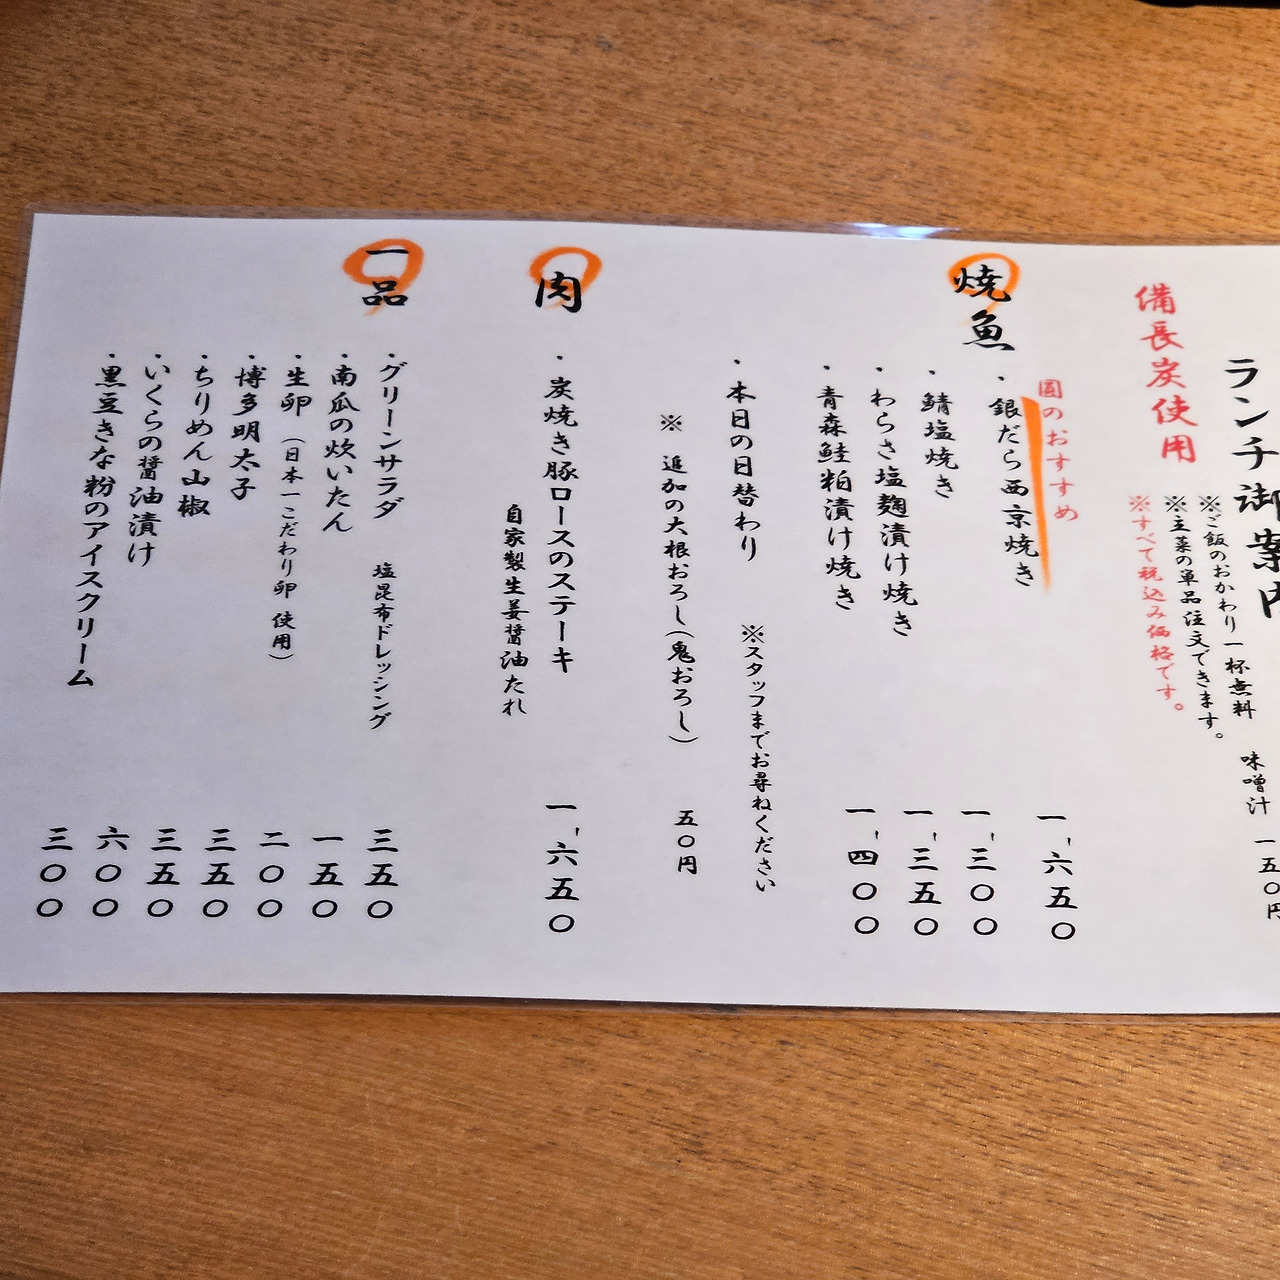 ランチ御案内
備長炭使用
※ご飯のおかわり一杯無料 味噌汁 一五〇円
※主菜の単品注文できます。
※すべて税込み価格です。
焼魚
圓のおすすめ
・銀だら西京焼き 一、六五〇
・鯖塩焼き 一、三〇〇
・わらさ塩麹漬け焼き 一、三五〇
・青森鮭粕漬け焼き 一、四〇〇
・本日の日替わり ※スタッフまでお尋ねください
※ 追加の大根おろし(鬼おろし) 五〇円
肉
・炭焼き豚ロースのステーキ 一、六五〇
自家製生姜醤油たれ
一品
・グリーンサラダ 塩昆布ドレッシング 三五〇
・南瓜の炊いたん 一五〇
・生卵(日本一こだわり卵 使用) 二〇〇
・博多明太子 三五〇
・ちりめん山椒 三五〇
・いくらの醤油漬け 六〇〇
・黒豆きな粉のアイスクリーム 三〇〇